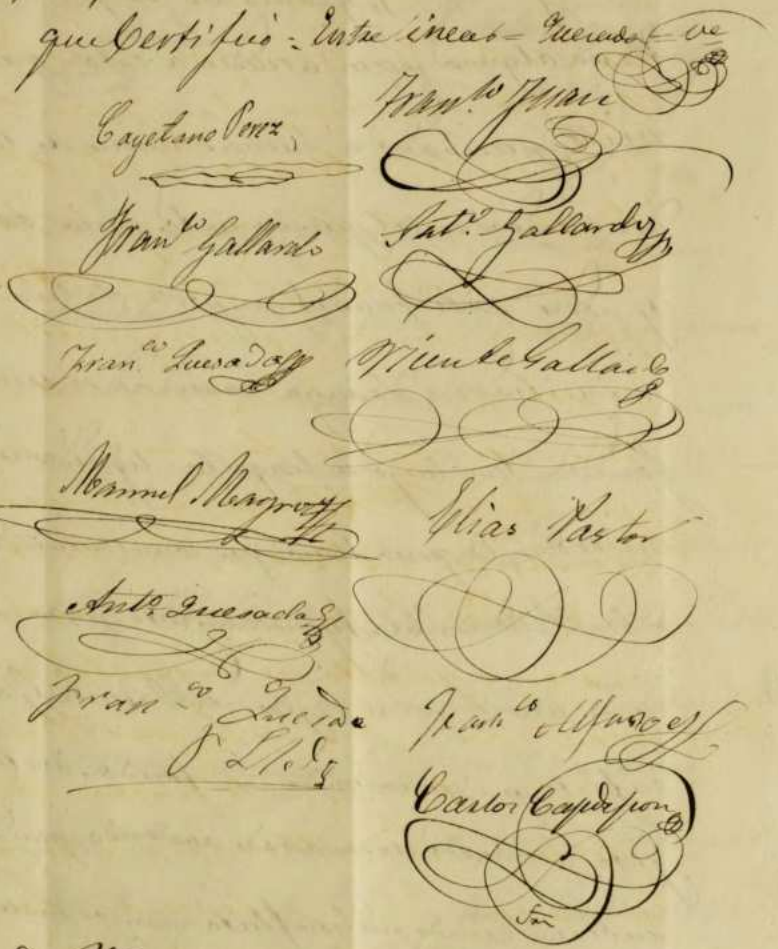 que Certifico = Entre lineas = Quesada = ve
Franco Juan
Cayetano Perez
Franco Gallardo
Satº Gallardo
Franco Quesada
Vicente Gallardo
Manuel Magro
Elias Pastor
Antº Quesada
Franco Quesada
y Lled
Franco Alfaro
Carlos Capdepon
Srio